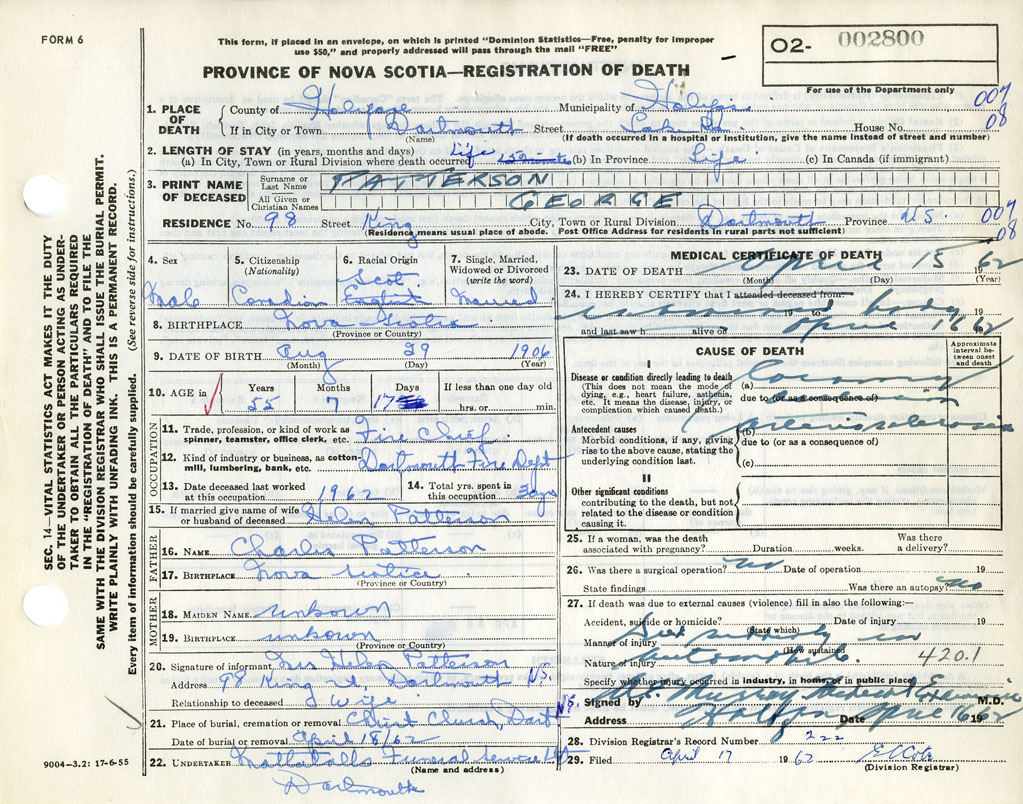 FORM 6
This form, if placed in an envelope, on which is printed "Dominion Statistics—Free, penalty for improper
use $50," and properly addressed will pass through the mail "FREE"
PROVINCE OF NOVA SCOTIA—REGISTRATION OF DEATH
O2- 002800
For use of the Department only
007
08
1. PLACE OF DEATH
County of Halifax Municipality of Halifax
If in City or Town Dartmouth Street Lake Rd. House No.
(Name) (If death occurred in a hospital or institution, give the name instead of street and number)
2. LENGTH OF STAY (in years, months and days)
(a) In City, Town or Rural Division where death occurred Life (b) In Province Life (c) In Canada (if immigrant)
3. PRINT NAME OF DECEASED
Surname or Last Name PATTERSON
All Given or Christian Names GEORGE
RESIDENCE No. 98 Street King City, Town or Rural Division Dartmouth Province N.S. 007
08
(Residence means usual place of abode. Post Office Address for residents in rural parts not sufficient)
4. Sex
Male
5. Citizenship
(Nationality)
Canadian
6. Racial Origin
Scot
English
7. Single, Married, Widowed or Divorced
(write the word)
Married
8. BIRTHPLACE Nova Scotia
(Province or Country)
9. DATE OF BIRTH Aug 29 1906
(Month) (Day) (Year)
10. AGE in
Years Months Days If less than one day old
55 7 17 hrs. or min.
OCCUPATION
11. Trade, profession, or kind of work as
spinner, teamster, office clerk, etc. Fire Chief
12. Kind of industry or business, as cotton-
mill, lumbering, bank, etc. Dartmouth Fire Dept
13. Date deceased last worked
at this occupation 1962
14. Total yrs. spent in
this occupation
15. If married give name of wife
or husband of deceased Helen Patterson
FATHER
16. NAME Charles Patterson
17. BIRTHPLACE Nova Scotia
(Province or Country)
MOTHER
18. MAIDEN NAME unkown
19. BIRTHPLACE unkown
(Province or Country)
20. Signature of informant Helen Patterson
Address 98 King St. Dartmouth N.S.
Relationship to deceased Wife
21. Place of burial, cremation or removal Christ Church, Dart N.S.
Date of burial or removal April 18/62
22. UNDERTAKER Mattatalls Funeral Service Ltd
(Name and address)
Dartmouth
9004-3.2: 17-6-55
MEDICAL CERTIFICATE OF DEATH
23. DATE OF DEATH April 15 1962
(Month) (Day) (Year)
24. I HEREBY CERTIFY that I attended deceased from
body
19 to 19
and last saw h alive on April 16 62
CAUSE OF DEATH
Approximate interval between onset and death
I
Disease or condition directly leading to death
(This does not mean the mode of
dying, e.g., heart failure, asthenia,
etc. It means the disease, injury, or
complication which caused death.)
(a) Coronary
due to (or as a consequence of)
Antecedent causes
Morbid conditions, if any, giving
rise to the above cause, stating the
underlying condition last.
(b) arteriosclerosis
due to (or as a consequence of)
(c)
II
Other significant conditions
contributing to the death, but not
related to the disease or condition
causing it.
25. If a woman, was the death
associated with pregnancy? Duration weeks. Was there
a delivery?
26. Was there a surgical operation? no Date of operation 19
State findings Was there an autopsy? no
27. If death was due to external causes (violence) fill in also the following:—
Accident, suicide or homicide? Date of injury 19
(State which)
Manner of injury Died suddenly in
(How sustained)
Nature of injury automobile. 420.1
Specify whether injury occurred in industry, in home, or in public place
Signed by Murray Medical Examiner M.D.
Address Halifax Date April 16 1962
28. Division Registrar's Record Number 222
29. Filed April 17 1962
(Division Registrar)
SEC. 14—VITAL STATISTICS ACT MAKES IT THE DUTY
OF THE UNDERTAKER OR PERSON ACTING AS UNDER-
TAKER TO OBTAIN ALL THE PARTICULARS REQUIRED
IN THE "REGISTRATION OF DEATH" AND TO FILE THE
SAME WITH THE DIVISION REGISTRAR WHO SHALL ISSUE THE BURIAL PERMIT.
WRITE PLAINLY WITH UNFADING INK. THIS IS A PERMANENT RECORD.
Every item of information should be carefully supplied. (See reverse side for instructions.)